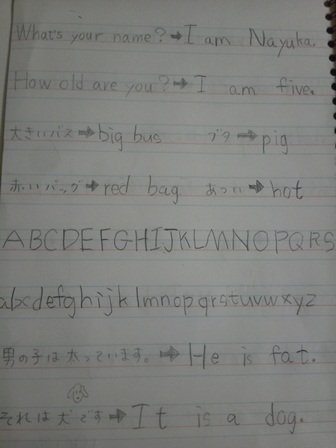 What's your name?➡I am Nayuka.
How old are you?➡I am five.
大きいバス➡big bus ブタ➡pig
赤いバッグ➡red bag あつい➡hot
ABCDEFGHIJKLMNOPQRS
abcdefghijklmnopqrstuvwxyz
男の子は太っています。➡He is fat.
それは犬です➡It is a dog.